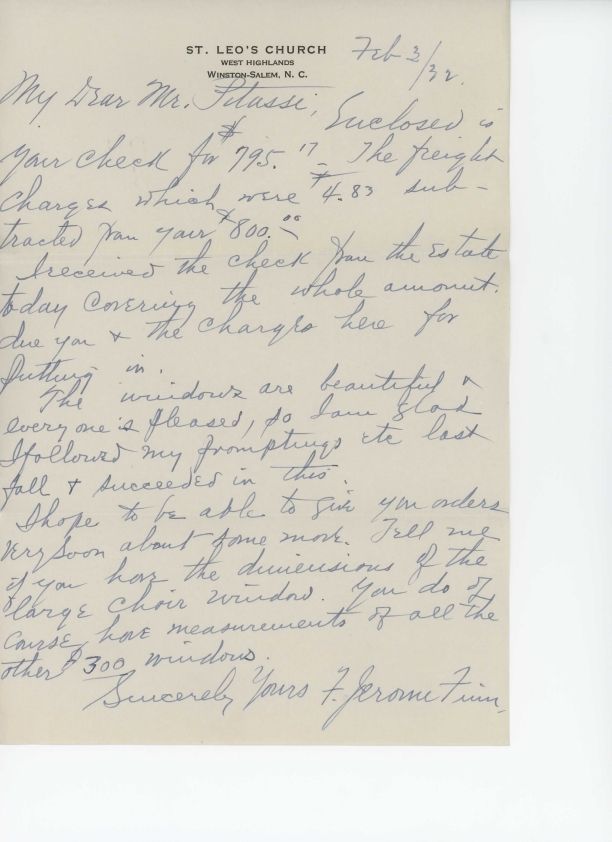 ST. LEO'S CHURCH
WEST HIGHLANDS
WINSTON-SALEM, N. C.
Feb 3/32.
My Dear Mr. Pitassi, Enclosed is
your check for $795.17 - The freight
charges which were $4.83 sub-
tracted from your $800.00
I received the check from the Estate
today covering the whole amount.
due you & the charges here for
putting in.
The windows are beautiful &
everyone is pleased, so I am glad
I followed my promptings etc last
fall & succeeded in this.
I hope to be able to give you orders
very soon about some more. Tell me
if you have the dimensions of the
large choir window. You do of
course, have measurements of all the
other $300 windows.
Sincerely Yours F. Jerome Finn,